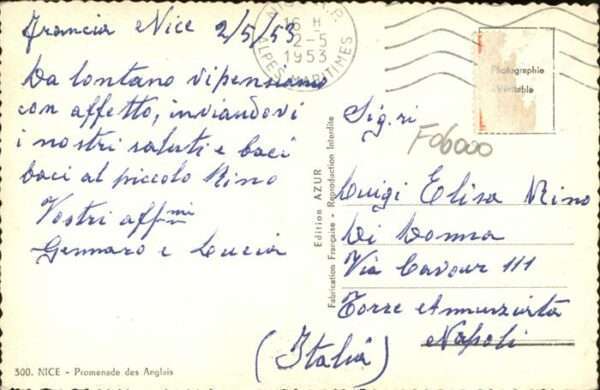 Francia Nice 2/5/53
Da lontano vi pensiamo
con affetto, inviandovi
i nostri saluti e baci
baci al piccolo Nino
Vostri aff.mi
Gennaro e Lucia
500. NICE - Promenade des Anglais
16 H
2-5
1953
ALPES MARITIMES
Edition AZUR
Fabrication Française - Reproduction Interdite
Photographie
Véritable
F06000
Sig.ri
Luigi Elisa Nino
Di Donna
Via Cavour 111
Torre Annunziata
Napoli
(Italia)